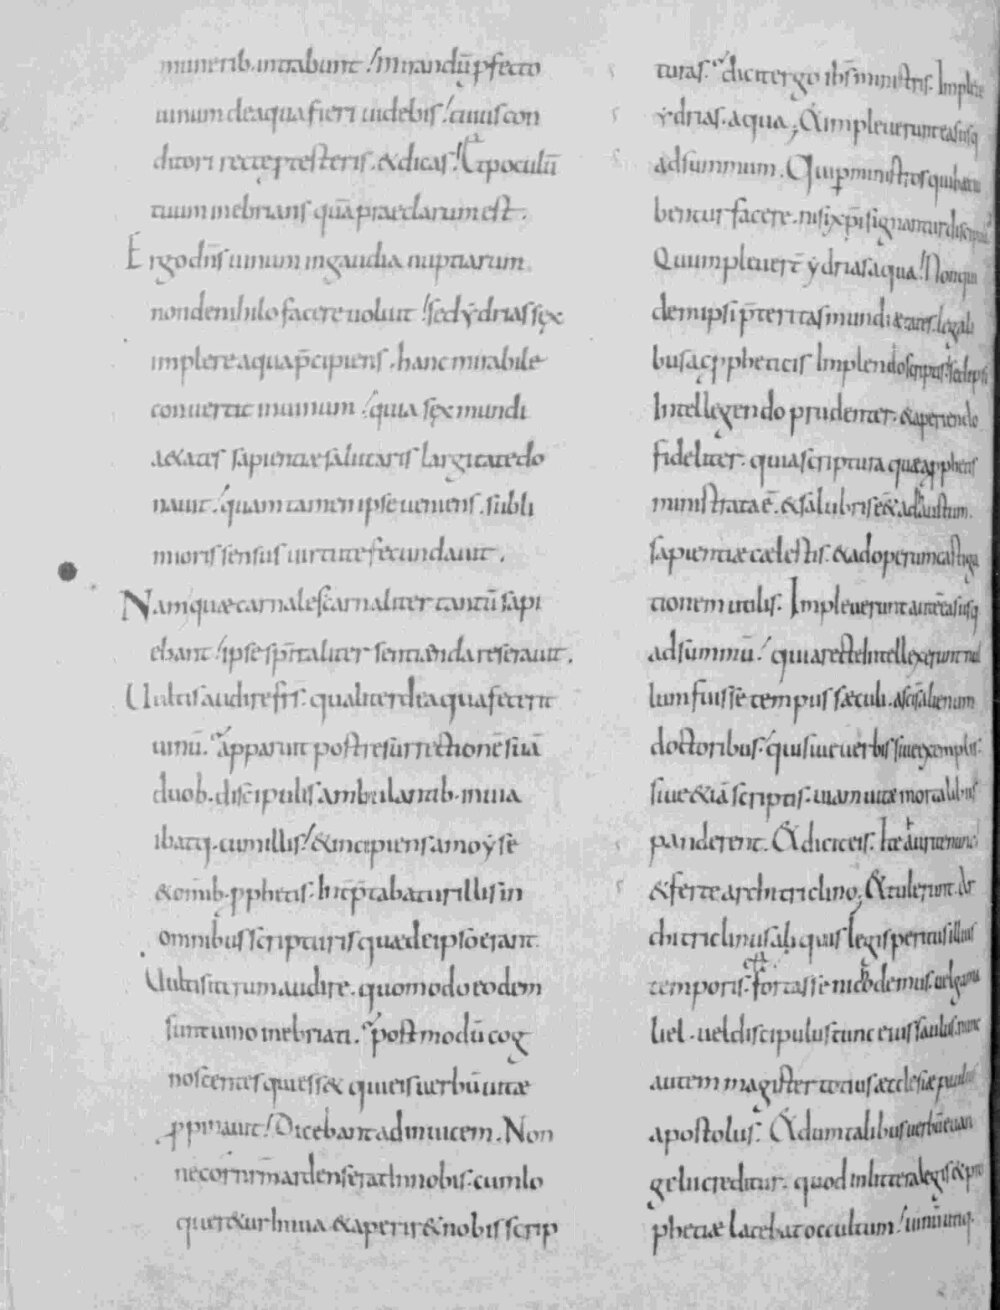 munerib. intrabunt! mirandū pfecto
uinum de aqua fieri uidebis! cuius con
ditori recte p̄testeris. & dicas! Et poculū
tuum inebrians quā praeclarum est.
Ergo dn̄s uinum in gaudia nuptiarum
non de nihilo facere uoluit! sed ydrias sex
implere aqua p̄cipiens. hanc mirabile
conuertit in uinum! quia sęx mundi
aetates sapientiæ salutaris largitate do
nauit! quam tamen ipse ueniens. subli
mioris sensus uirtute fecundauit.
Namquæ carnales carnaliter tantū sapi
ebant! ipse spītaliter sentienda reserauit.
Uultis audire fr̄s. qualiter de aqua fecerit
uinū. apparuit post resurrectionē suā
duob. discipulis ambulantib. in uia
ibatq. cum illis! & incipiens a moyse
& omīb. pphetis. Intp̄tabatur illis in
omnibus scripturis quæ de ipso erant.
Uultis iterum audire. quomodo eodem
sunt uino inebriati. post modū cog
noscentes quis ess& qui eis uerbū uitæ
ppinauit! Dicebant ad inuicem. Non
ne cor nr̄m ardens erat In nobis. cum lo
quer&ur In uia & aperir& nobis scrip
turas. dicit ergo ihs ministris. Implete
ydrias. aqua; & impleuerunt eas usq
ad summum. Qui p ministros quib
bentur facere. nisi xp̄i signantur discipuli
Qui impleuerē ydrias aqua! Non qui
dem ipsi p̄teritas mundi ætates. legali
bus ac ppheticis Implendo scriptis! sed ipsi
Intellegendo prudenter. & aperiendo
fideliter. quia scriptura quæ a pphetis
ministrata ē. & salubris ē & ad haustum.
sapientiæ cælestis. & ad operum castiga
tionem utilis. Impleuerunt autē eas usq
ad summū! quia recte Intellexerunt nul
lum fuisse tempus sæculi. a scīs alienum
doctoribus. qui siue uerbis siue exemplis.
siue &iā scriptis. uiam uitæ mortalibus
panderent. & dicit eis. haurite nunc
& ferte architriclino; & tulerunt. Ar
chitriclinus aliquis legis peritus illius
temporis. est fortasse nichodemus. uel gama
liel. uel discipulus tunc eius saulus. nunc
autem magister totius æcclesiæ paulus
apostolus. & dum talibus uerbū euan
gelii creditur. quod in littera legis & pro
phetiæ latebat occultum! uinū